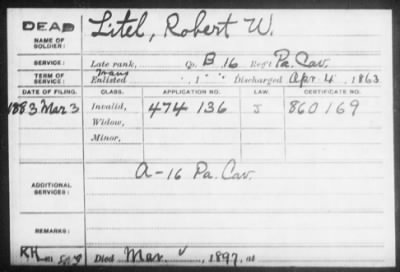 DEAD Litel, Robert W.
NAME OF SOLDIER:
SERVICE: Late rank, Co. B. 16 Reg't Pa. Cav.
TERM OF SERVICE: Trans Enlisted , 1 Discharged Apr. 4, 1863
DATE OF FILING. CLASS. APPLICATION NO. LAW. CERTIFICATE NO.
1883 Mar 3 Invalid, 474 136 J 860169
Widow,
Minor,
A-16 Pa. Cav.
ADDITIONAL SERVICES:
REMARKS:
RH Died Mar. , 1897, at